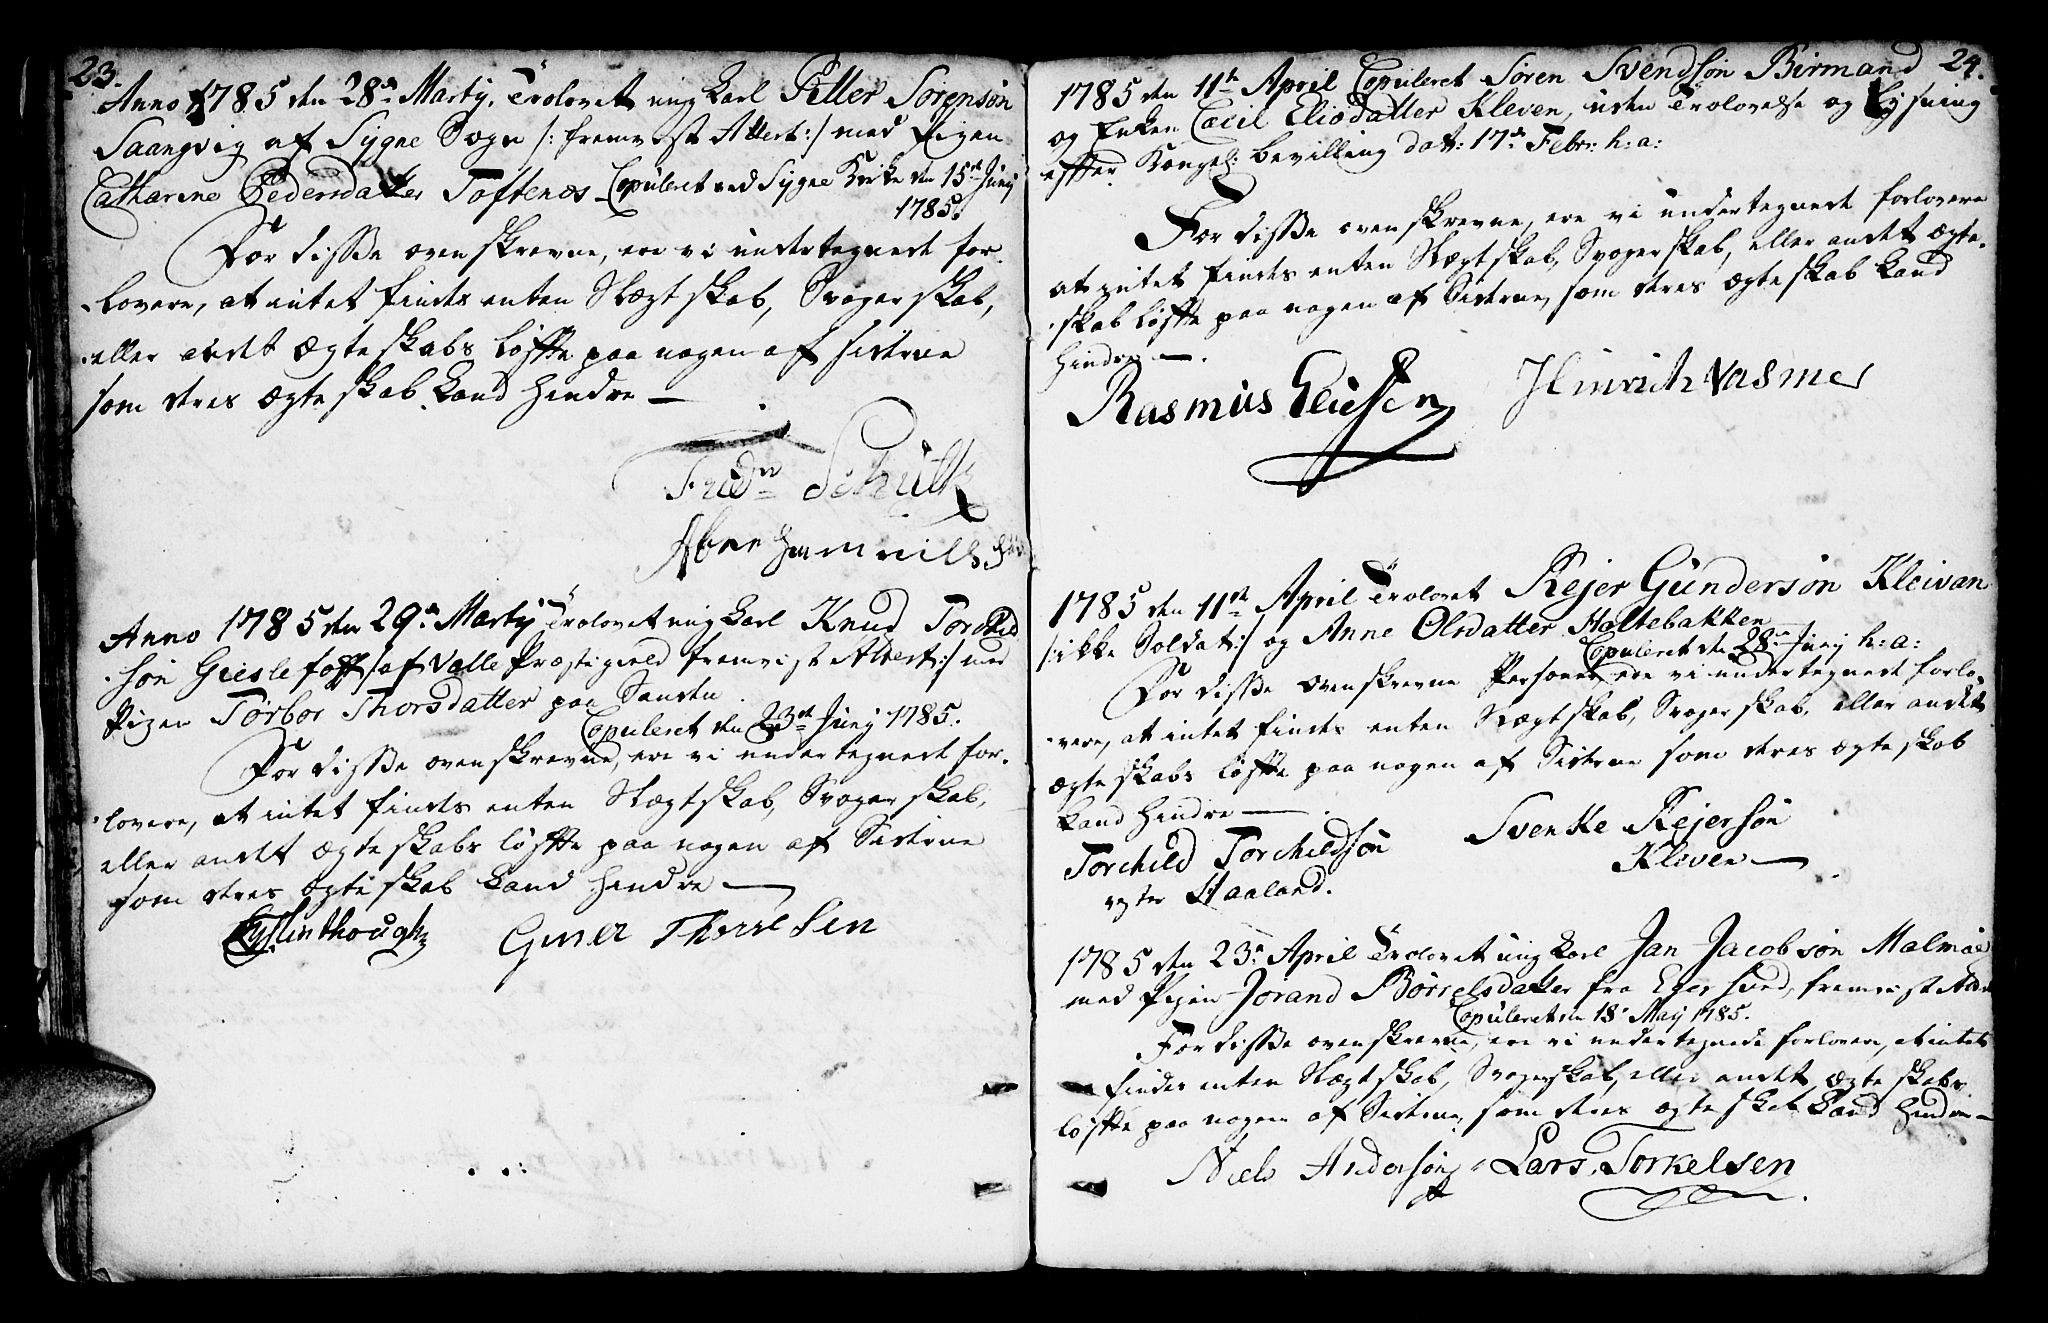 23.
Anno 1785 den 28de Martÿ. Trolovet ung Karl Pitter Sørensøn
Saangvig af Sygne Sogn /: fremvist Attest :/ med Pigen
Catharine Pedersdatter Toftenæs - Copuleret ved Sygne Kirke den 15de Junÿ
1785.
For disse ovenskrevne, ere vi undertegnede for-
-lovere, at intet findes enten Slægtskab, Svogerskab,
eller andet ægteskabs løffte paa nogen af Siderne
som deres ægteskab kand hindre —
Fridr Schultz
Anno 1785 den 29de Martÿ Trolovet ung Karl Knud Torchild
-søn Gieslefoss /: af Valle Præstegield fremvist Attest :/ med
Pigen Torbor Thorsdatter paa Sanden.
Copuleret den 23de Junÿ 1785.
For disse ovenskrevne, ere vi undertegnede for-
-lovere, at intet findes enten Slægtskab, Svogerskab,
eller andet ægteskabs løffte paa nogen af Siderne
som deres ægteskab kand hindre —
Giner Thorelsen
24.
1785 den 11te April Copuleret Søren Svendsøn Birmand
og Enken Cecil Eliædatter Kleven, uden Trolovelse og Lysning
effter Kongel: bevilling dat: 17de Febr: h: a:
For disse ovenskrevne, ere vi undertegnede forlovere
at intet findes enten Slægtskab, Svogerskab, eller andet ægte-
-skab løffte paa nogen af Siderne, som deres ægteskab kand
hindre —.
Rasmus Eliessen Hinrich Vasmer
1785 den 11te April Trolovet Rejer Gundersøn Kleivan
/: ikke Soldat :/ og Anne Olsdatter Holtebakken
Copuleret den 28de Junÿ h: a:
For disse ovenskrevne Personer ere vi undertegnede forlo-
-vere, at intet findes enten Slægtskab, Svogerskab, eller andet
ægteskabs løffte paa nogen af Siderne som deres ægteskab
kand hindre —
Torchild Torchildsøn Svenke Rejersøn
Haaland. Kleven —
1785 den 23de April Trolovet ung Karl Jan Jacobsøn Malmøe
med Pigen Jorand Børrelsdatter fra Egersund, fremvist Attest
Copuleret den 18de Maÿ 1785.
For disse ovenskrevne, ere vi undertegnede forlovere, at intet
findes enten Slægtskab, Svogerskab, eller andet ægteskabs
løffte paa nogen af Siderne, som deres ægteskab kand hindre —
Niels Andersøn Lars Torkelsen